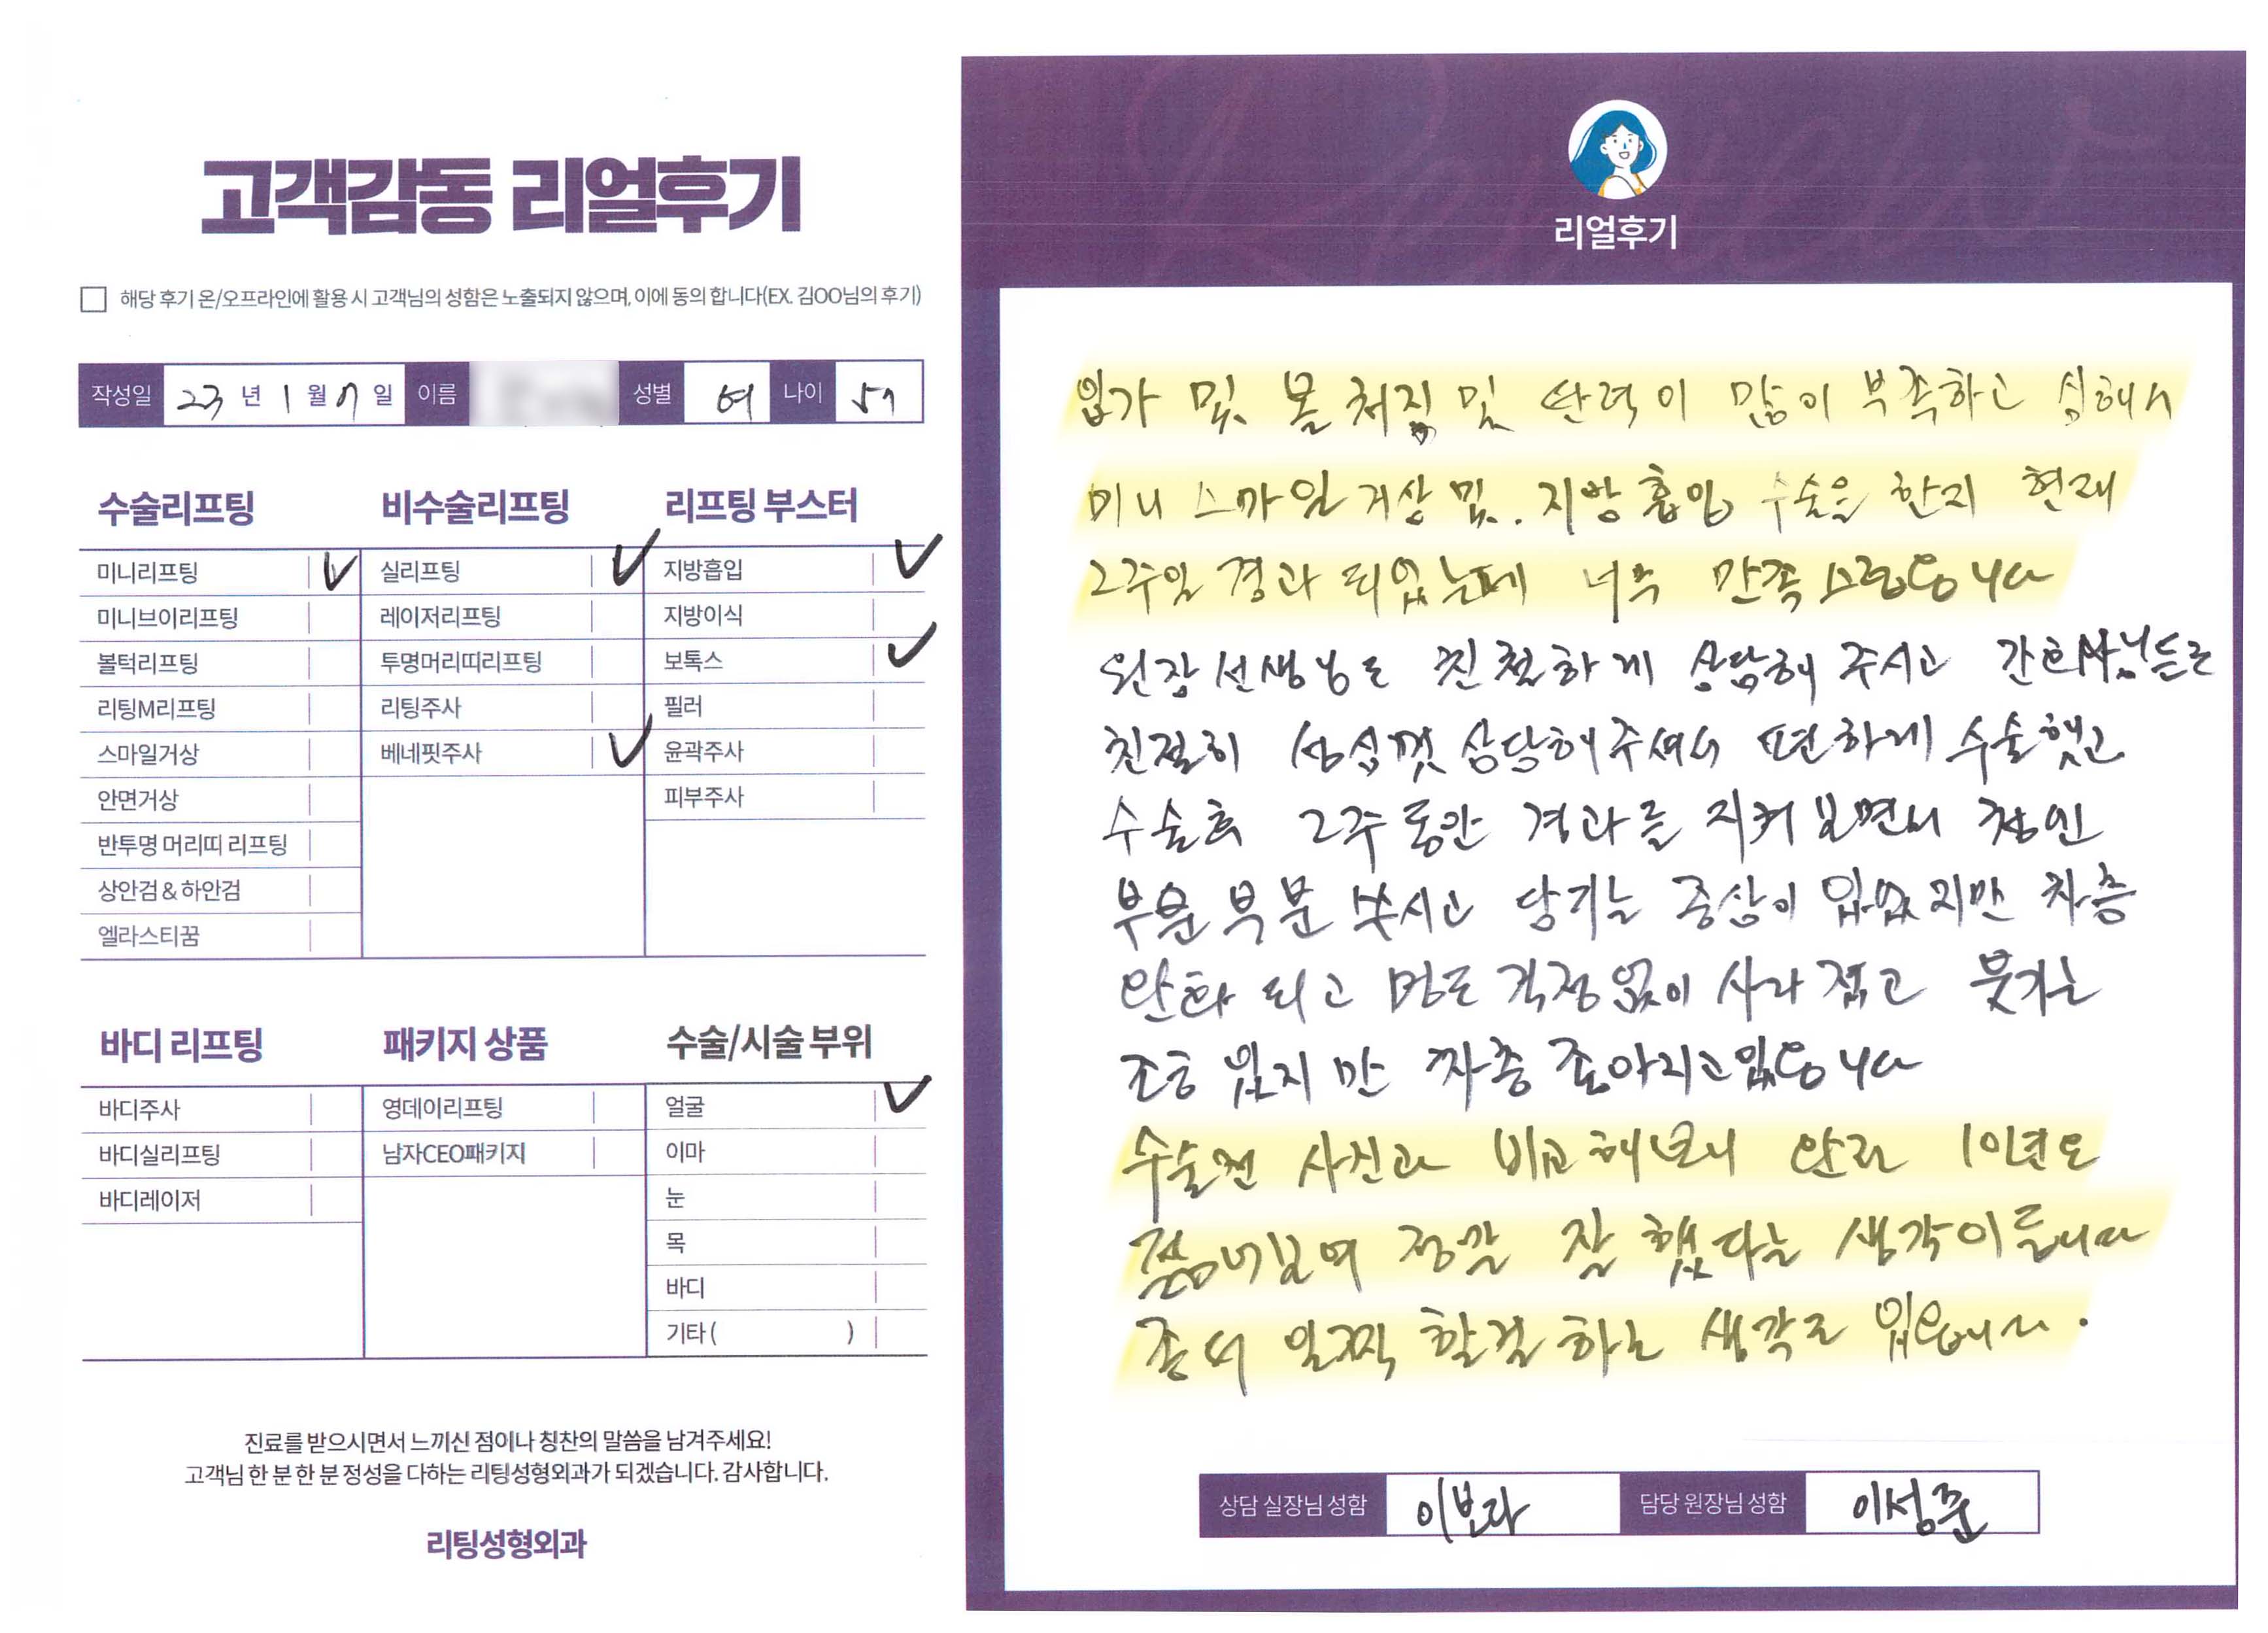 고객감동 리얼후기
해당 후기 온/오프라인에 활용 시 고객님의 성함은 노출되지 않으며, 이에 동의 합니다(EX. 김OO님의 후기)
작성일 23 년 1 월 17 일 이름 성별 여 나이 57
수술리프팅
미니리프팅
미니브이리프팅
볼턱리프팅
리팅M리프팅
스마일거상
안면거상
반투명 머리띠 리프팅
상안검 & 하안검
엘라스티꿈
비수술리프팅
실리프팅
레이저리프팅
투명머리띠리프팅
리팅주사
베네핏주사
리프팅 부스터
지방흡입
지방이식
보톡스
필러
윤곽주사
피부주사
바디 리프팅
바디주사
바디실리프팅
바디레이저
패키지 상품
영데이리프팅
남자CEO패키지
수술/시술 부위
얼굴
이마
눈
목
바디
기타 ( )
진료를 받으시면서 느끼신 점이나 칭찬의 말씀을 남겨주세요!
고객님 한 분 한 분 정성을 다하는 리팅성형외과가 되겠습니다. 감사합니다.
리팅성형외과
리얼후기
입가 및 볼 처짐 및 탄력이 많이 부족하고 심해서
미니 스마일 거상 및. 지방흡입 수술을 한지 현재
2주일 경과 되었는데 너무 만족스럽습니다
원장선생님도 친절하게 상담해 주시고 간호사님들도
친절히 성심껏 상담해주셔서 편하게 수술했고
수술후 2주동안 경과를 지켜보면서 처음엔
부분 부분 쑤시고 당기는 증상이 있었지만 차츰
완화 되고 멍도 걱정없이 사라졌고 붓기는
조금 있지만 차츰 좋아지고있습니다
수술전 사진과 비교해보니 한 10년도
젊어보여 정말 잘 했다는 생각이 듭니다
좀더 일찍 할걸 하는 생각도 있습니다.
상담 실장님 성함 이보라 담당 원장님 성함 이성준